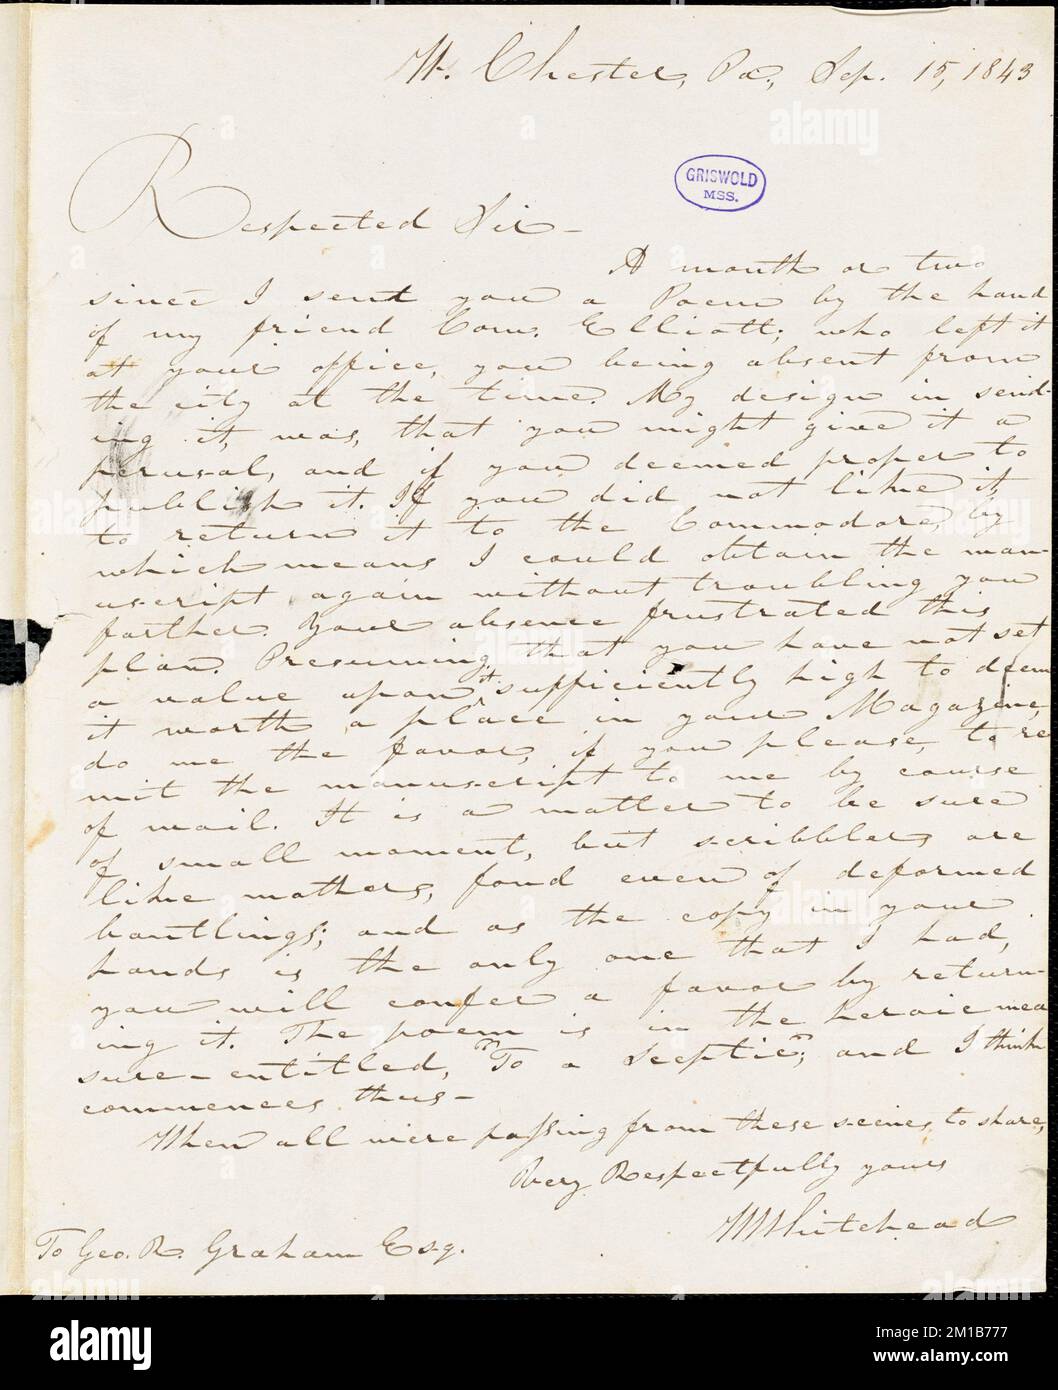 W. Chester, Pa., Sep. 15, 1843
GRISWOLD
MSS.
Respected Sir –
A month or two
since I sent you a Poem by the hand
of my friend Com. Elliott; who left it
at your office, you being absent from
the city at the time. My design in send-
ing it, was, that you might give it a
perusal, and if you deemed proper to
publish it. If you did not like it,
to return it to the Commodore, by
which means I could obtain the man-
uscript again without troubling you
farther. Your absence frustrated this
plan. Presuming that you have not set
a value upon it sufficiently high to deem
it worth a place in your Magazine,
do me the favor, if you please, to re-
mit the manuscript to me by course
of mail. It is a matter to be sure
of small moment, but scribblers are
like mothers, fond even of deformed
bantlings; and as the copy in your
hands is the only one that I had,
you will confer a favor by return-
ing it. The poem is in the heroic mea
sure – entitled, "To a Sceptic"; and I think
commences thus –
When all were passing from these scenes to share,
Very Respectfully yours
W Whitehead
To Geo. R. Graham Esq.
alamy
Image ID: 2M1B777
www.alamy.com